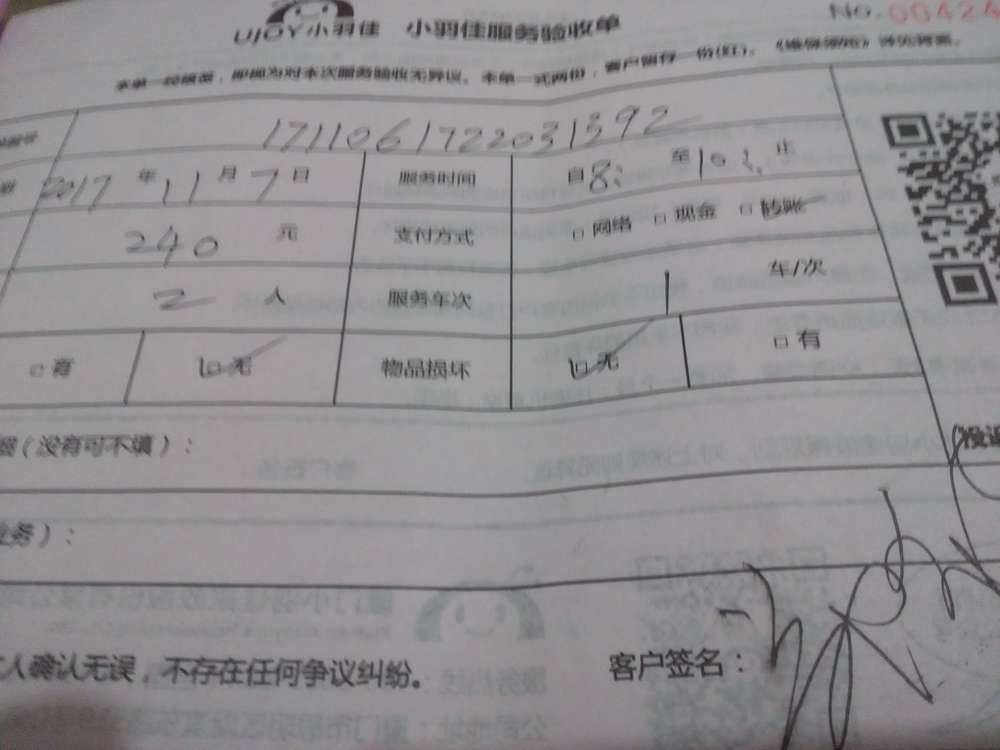 UJOY小羽佳 小羽佳服务验收单 No.00424
本单一经签署,即视为对本次服务验收无异议。本单一式两份,客户留存一份(红)。
1711061722031392
2017 年 11 月 7 日 服务时间 自 8: 至 10: 止
240 元 支付方式 □ 网络 □ 现金 □ 转账
2 人 服务车次 1 车/次
□ 有 □ 无 物品损坏 □ 无 □ 有
(没有可不填):
务):
人确认无误,不存在任何争议纠纷。 客户签名: